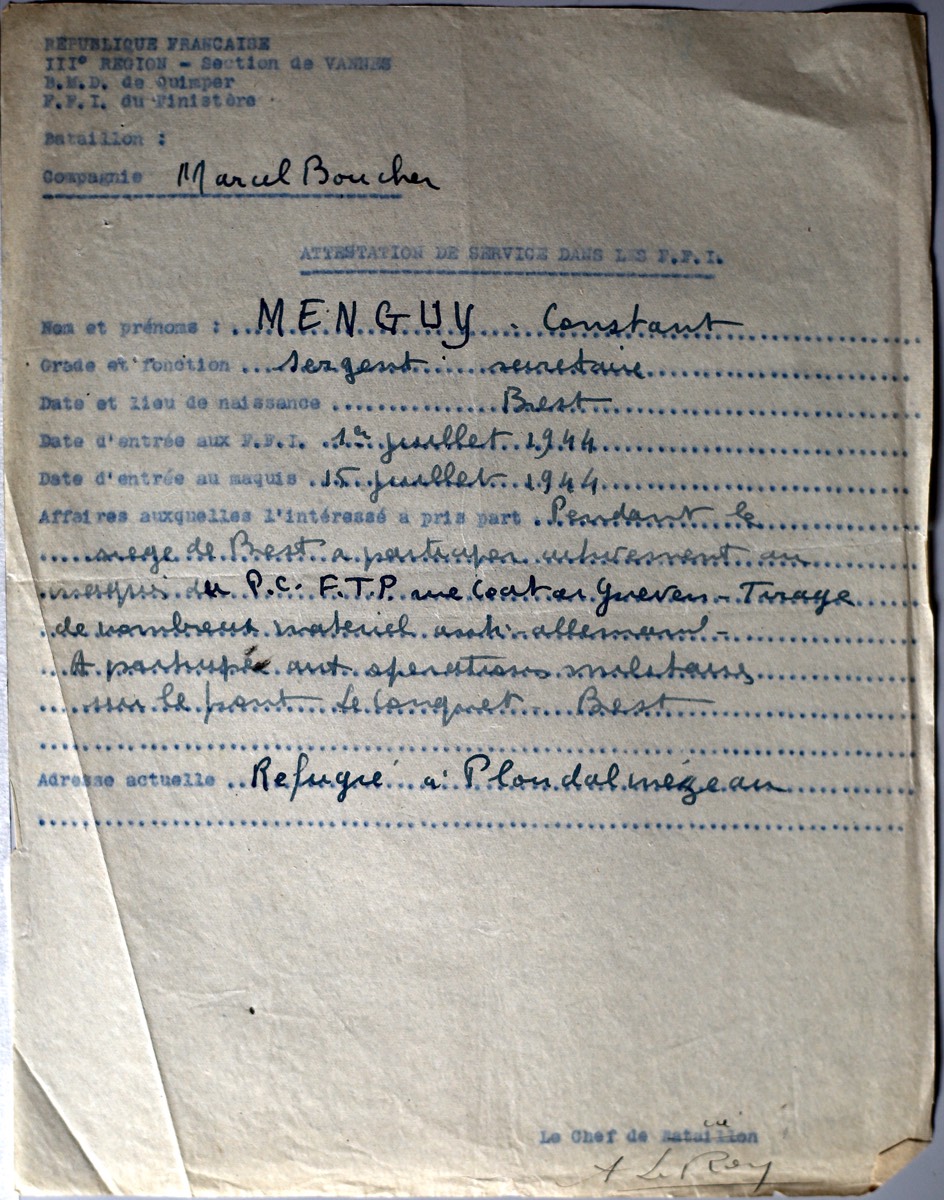 REPUBLIQUE FRANCAISE
III° REGION - Section de VANNES
B.M.D. de Quimper
F.F.I. du Finistère
Bataillon :
Compagnie Marcel Boucher
ATTESTATION DE SERVICE DANS LES F.F.I.
Nom et prénoms : MENGUY - Constant
Grade et fonction Sergent secretaire
Date et lieu de naissance Brest
Date d'entrée aux F.F.I. 1er juillet 1944
Date d'entrée au maquis 15 juillet 1944
Affaires auxquelles l'intéressé a pris part Pendant le
siege de Brest a participer activement au
maquis du P.C. F.T.P. rue Coat ar Gueven - Tirage
de nombreux materiel anti-allemand -
A participé aux operations militaires
sur le front Le Conquet - Brest
Adresse actuelle Refugié à Ploudalmézeau
Le Chef de Bataillon
A Le Roy